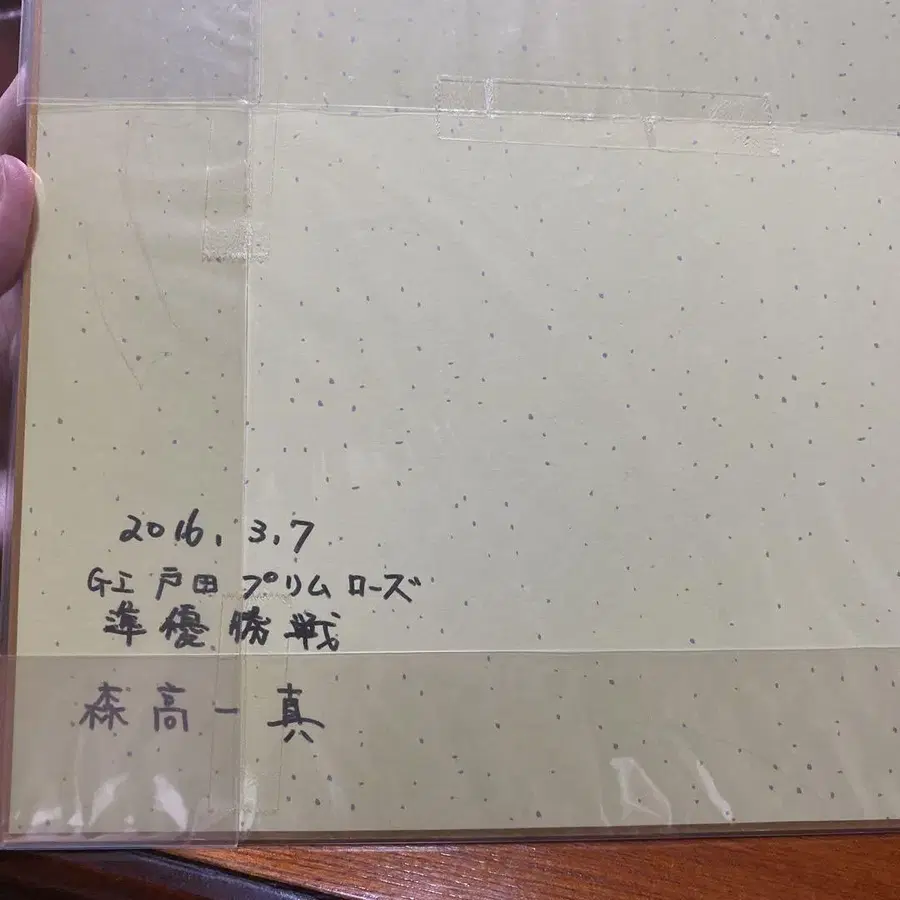 2016.3.7
GI 戸田 プリムローズ
準優勝戦
森高一真